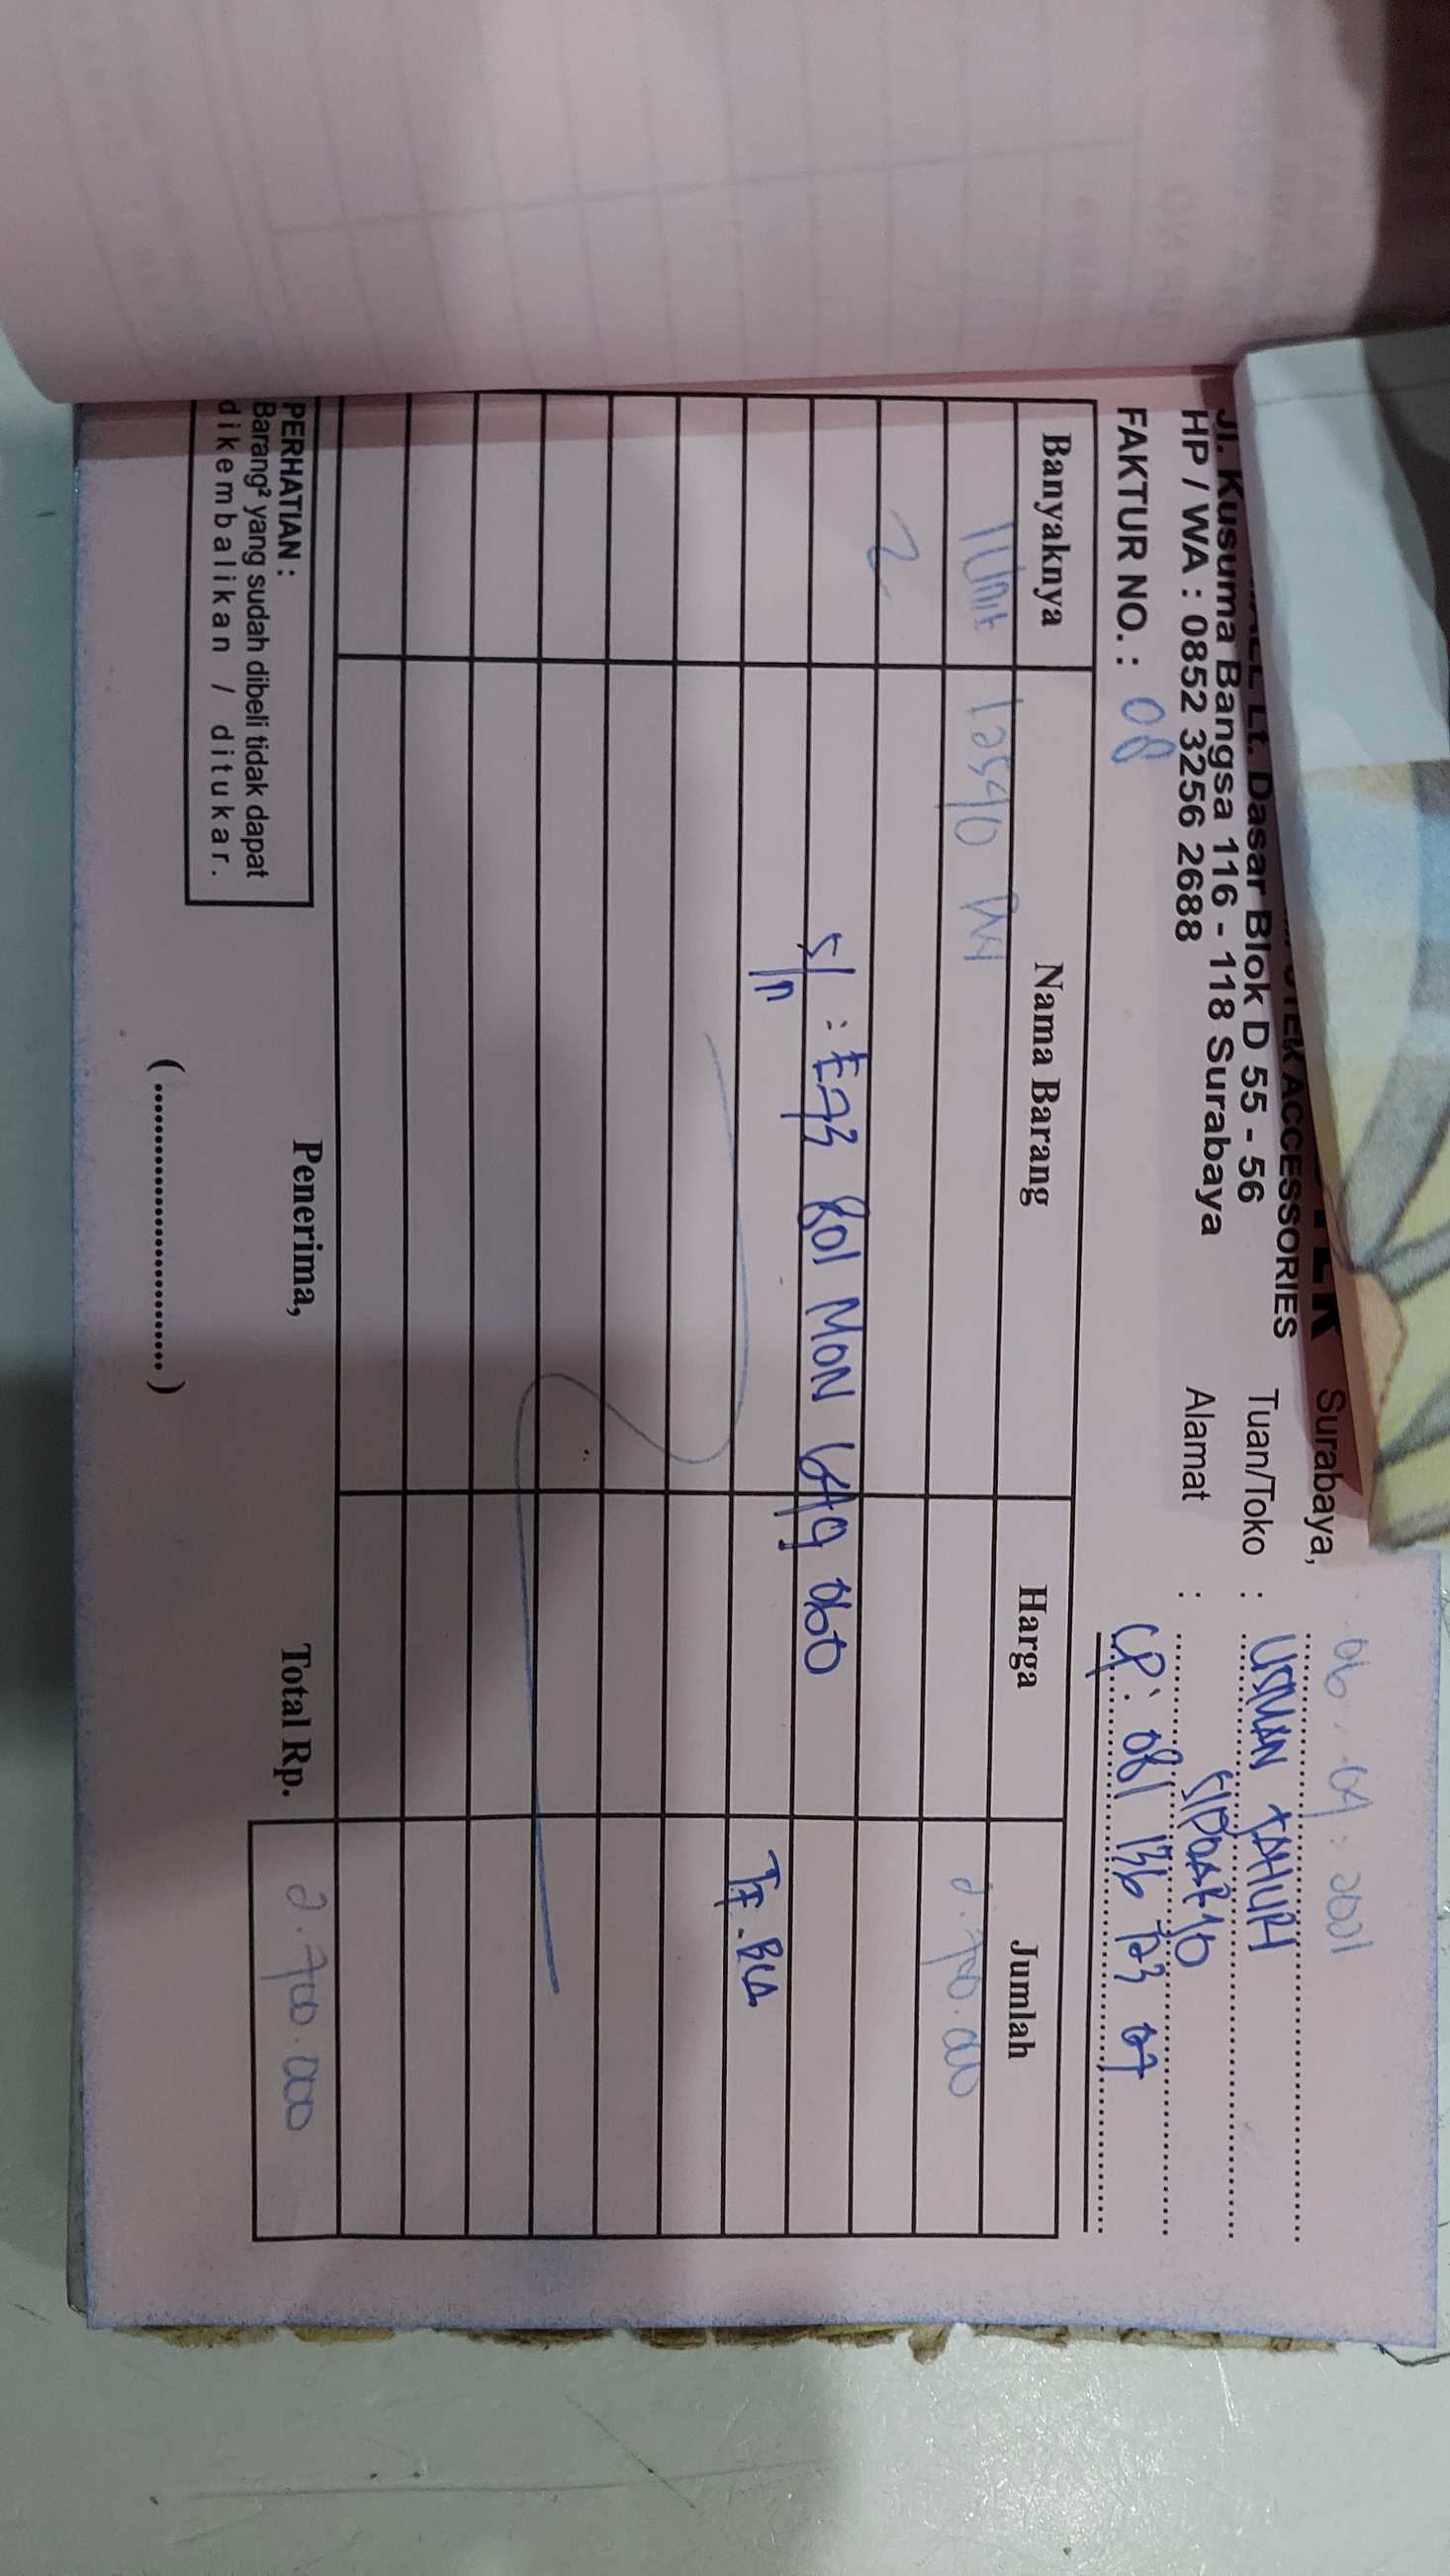 ACCESSORIES
Lt. Dasar Blok D 55 - 56
Jl. Kusuma Bangsa 116 - 118 Surabaya
HP / WA : 0852 3256 2688
FAKTUR NO. : 08
Surabaya, 06 . 04 . 2021
Tuan/Toko : USMAN
Alamat :
CP : 081 136 723 07
Banyaknya Nama Barang Harga Jumlah
1 Unit 2.700.000
2
S/N : E73 801 MON 649 060
TF. BCA
PERHATIAN :
Barang² yang sudah dibeli tidak dapat
dikembalikan / ditukar.
Penerima,
(........................)
Total Rp. 2.700.000